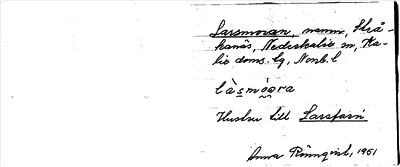 Larsmoran, namn, Strå-
kanäs, Nederkalix sn, Ka-
lix doms. lg, Nonb. l
làsmóɷra
Hustru till Larsfarin
Anna Rönnqvist, 1951